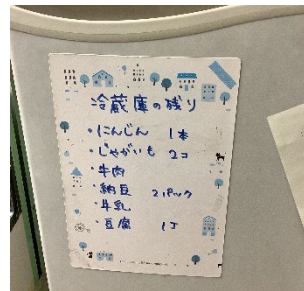 冷蔵庫の残り
・にんじん 1本
・じゃがいも 2コ
・牛肉
・納豆 2パック
・牛乳
・豆腐 1丁